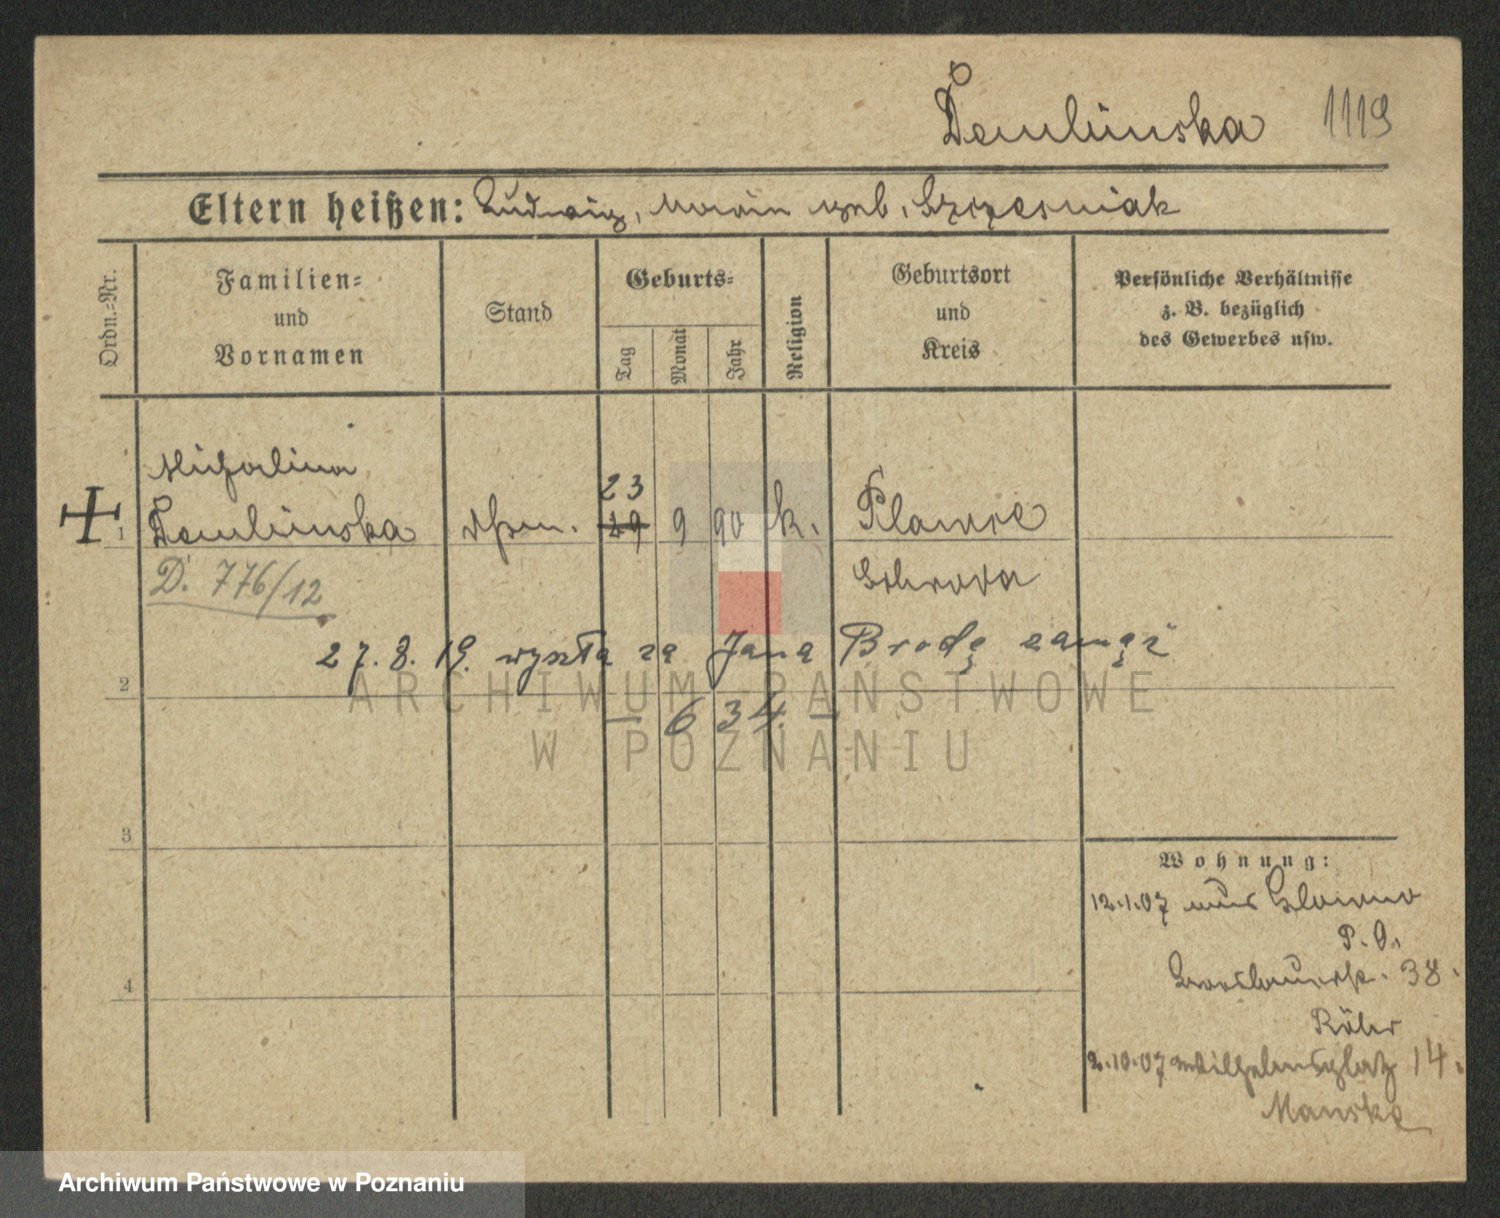 Demlinska 1119
Eltern heißen: Ludwig, Marie geb. Szczesniak
Ordn.-Nr.
Familien-
und
Vornamen
Stand
Geburts-
Tag
Monat
Jahr
Religion
Geburtsort
und
Kreis
Persönliche Verhältnisse
z. B. bezüglich
des Gewerbes usw.
Michalina
23
1 Demlinska 29 9 90 k. Plawce
D. 776/12 Schroda
27. 8. 19. wyszła za Jana Brodę zamąż
2
— 634. —
3
Wohnung:
12.1.07 aus Glowno
P. O.
Breslauerstr. 38.
4
Röhr
2.10.07 Wilhelmsplatz 14.
Manske
ARCHIWUM PAŃSTWOWE
W POZNANIU
Archiwum Państwowe w Poznaniu